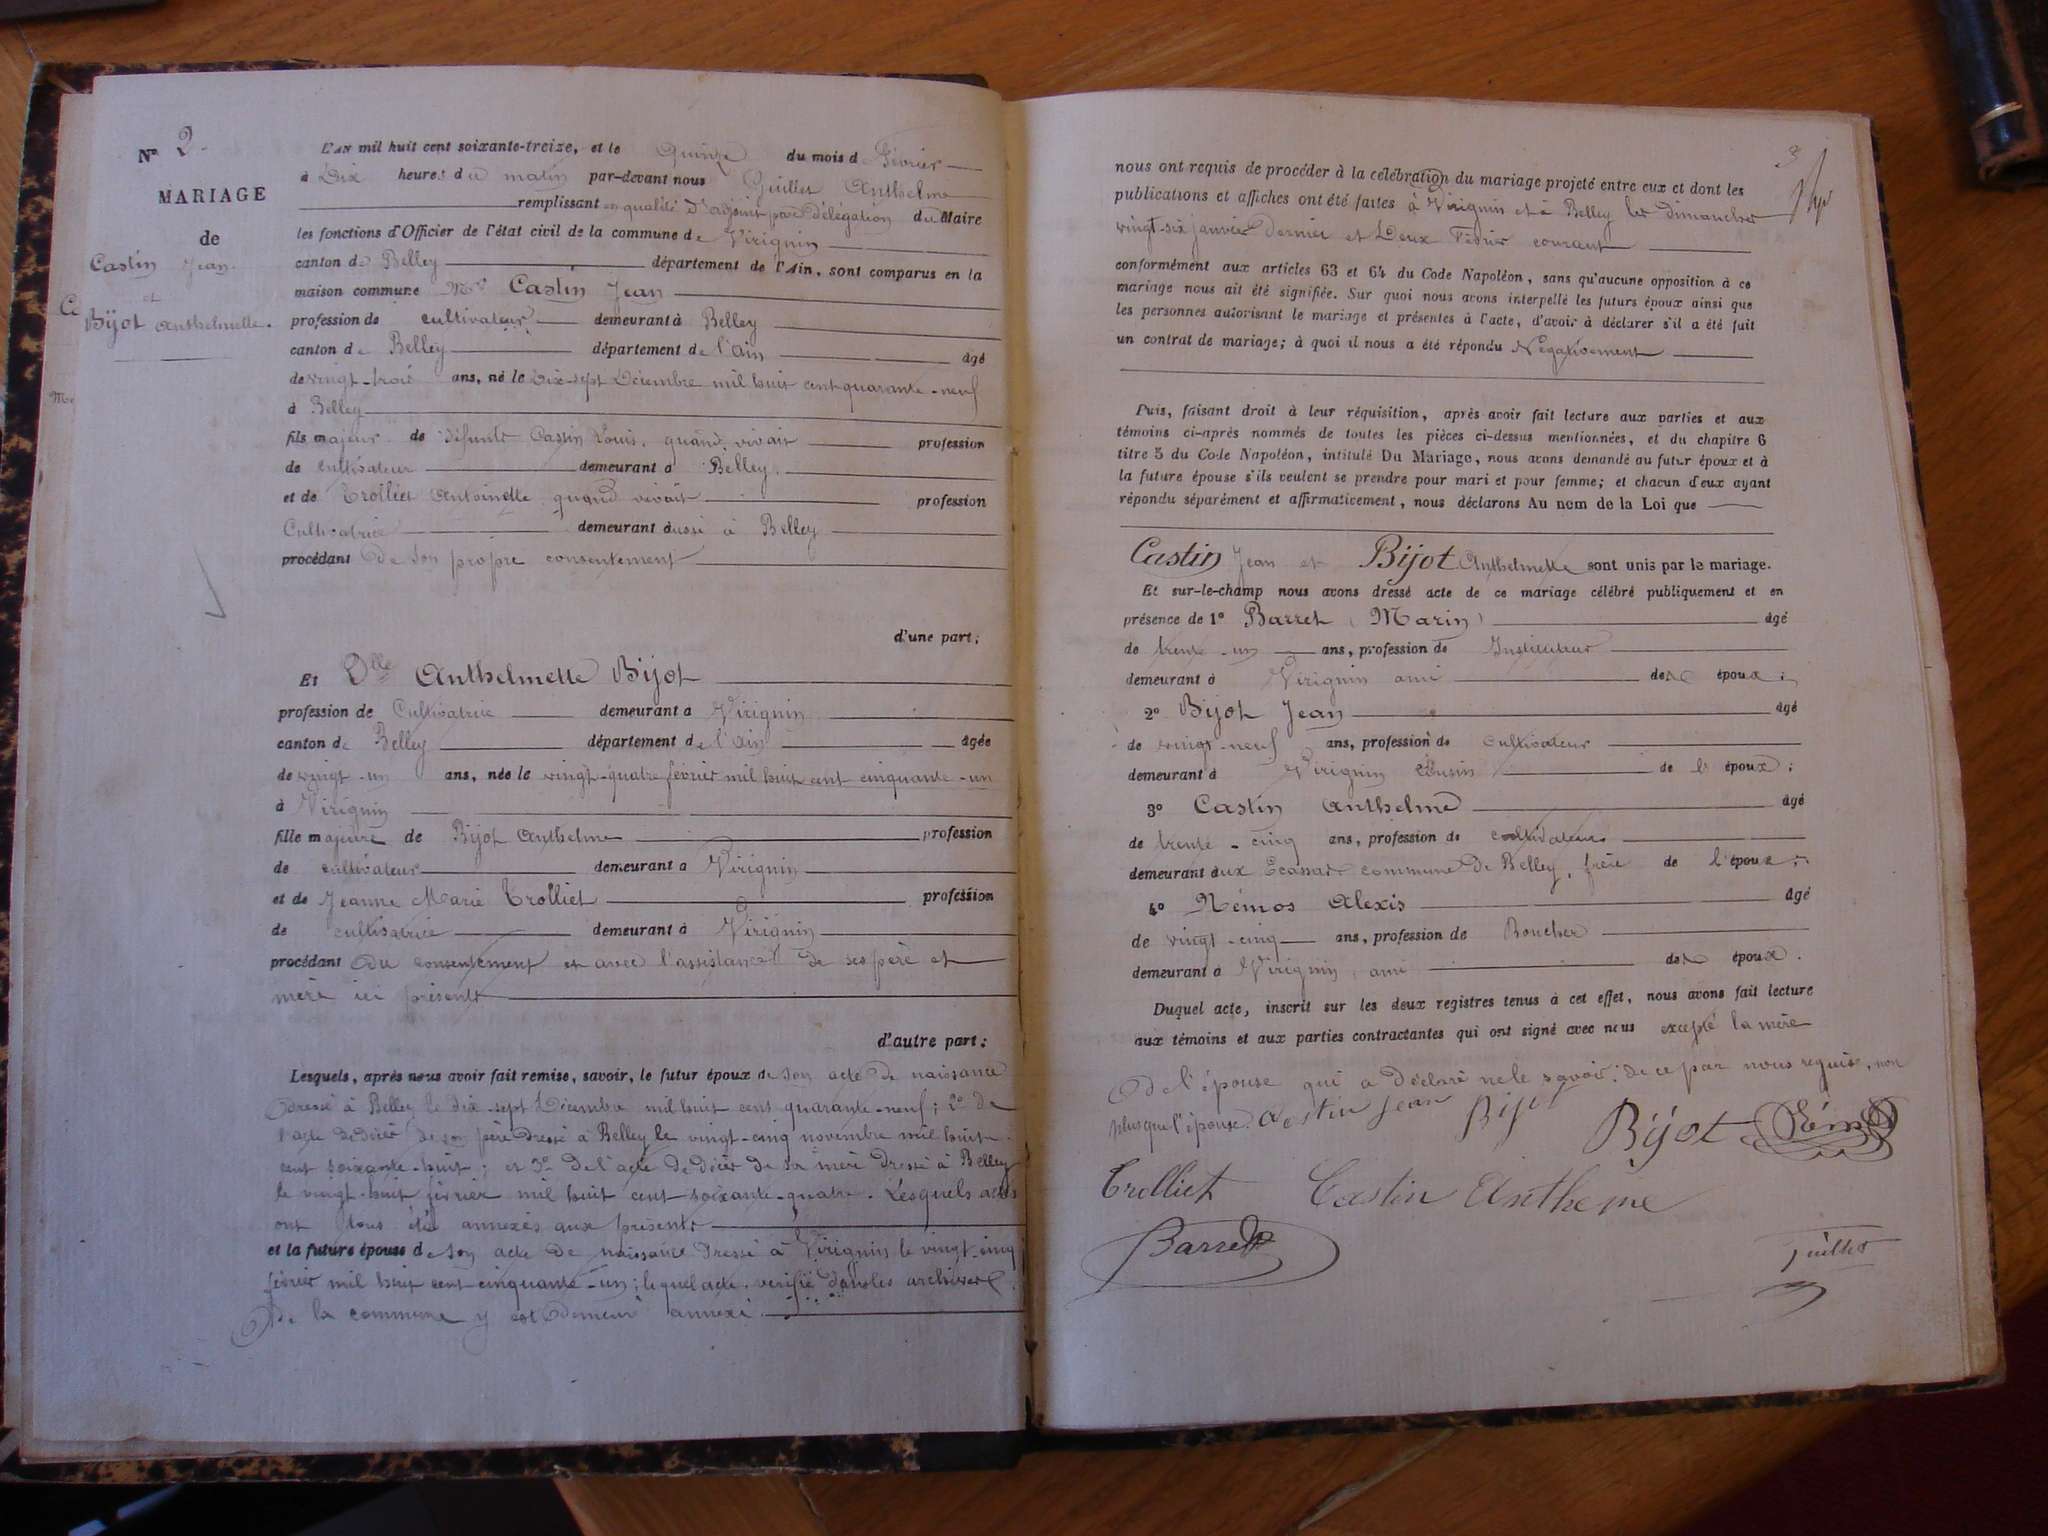 N° 2.
MARIAGE
de
Castin Jean
et
Bijot Anthelmette.
L'AN mil huit cent soixante-treize, et le Quinze du mois d Février
à Dix heures du matin par-devant nous Guillet Anthelme
remplissant en qualité d'adjoint par délégation du Maire
les fonctions d'Officier de l'état civil de la commune de Virignin
canton de Belley département de l'Ain, sont comparus en la
maison commune Mr Castin Jean
profession de cultivateur demeurant à Belley
canton de Belley département de l'Ain âgé
de vingt-trois ans, né le Dix-sept Décembre mil huit cent quarante-neuf
à Belley
fils majeur de défunt Castin Louis, quand vivait profession
de cultivateur demeurant à Belley.
et de Trolliet Antoinette quand vivait profession
Cultivatrice demeurant aussi à Belley
procédant de son propre consentement
d'une part;
Et Dlle Anthelmette Bijot
profession de Cultivatrice demeurant à Virignin
canton de Belley département de l'Ain âgée
de vingt-un ans, née le vingt-quatre février mil huit cent cinquante-un
à Virignin
fille majeure de Bijot Anthelme profession
de cultivateur demeurant à Virignin
et de Jeanne Marie Trolliet profession
de cultivatrice demeurant à Virignin
procédant du consentement et avec l'assistance de ses père et
mère ici présents
d'autre part:
Lesquels, après nous avoir fait remise, savoir, le futur époux de son acte de naissance
dressé à Belley le dix-sept Décembre mil huit cent quarante-neuf; 2° de
l'acte de décès de son père dressé à Belley le vingt-cinq novembre mil huit
cent soixante-huit; et 3° de l'acte de décès de sa mère dressé à Belley
le vingt-huit février mil huit cent soixante-quatre. Lesquels actes
ont tous été annexés aux présents
et la future épouse de son acte de naissance dressé à Virignin le vingt-cinq
février mil huit cent cinquante-un; lequel acte, vérifié dans les archives
De la commune y est demeuré annexé.
3
nous ont requis de procéder à la célébration du mariage projeté entre eux et dont les
publications et affiches ont été faites à Virignin et à Belley les dimanches
vingt-six janvier dernier et Deux Février courant
conformément aux articles 63 et 64 du Code Napoléon, sans qu'aucune opposition à ce
mariage nous ait été signifiée. Sur quoi nous avons interpellé les futurs époux ainsi que
les personnes autorisant le mariage et présentes à l'acte, d'avoir à déclarer s'il a été fait
un contrat de mariage; à quoi il nous a été répondu Négativement
Puis, faisant droit à leur réquisition, après avoir fait lecture aux parties et aux
témoins ci-après nommés de toutes les pièces ci-dessus mentionnées, et du chapitre 6
titre 5 du Code Napoléon, intitulé Du Mariage, nous avons demandé au futur époux et à
la future épouse s'ils veulent se prendre pour mari et pour femme; et chacun d'eux ayant
répondu séparément et affirmativement, nous déclarons Au nom de la Loi que
Castin Jean et Bijot Anthelmette sont unis par le mariage.
Et sur-le-champ nous avons dressé acte de ce mariage célébré publiquement et en
présence de 1° Barret (Marin) âgé
de trente-un ans, profession de Instituteur
demeurant à Virignin ami des époux;
2° Bijot Jean âgé
de vingt-neuf ans, profession de Cultivateur
demeurant à Virignin cousin de l'époux;
3° Castin Anthelme âgé
de trente-cinq ans, profession de cultivateur
demeurant aux Ecassaz commune de Belley, frère de l'époux;
4° Némos Alexis âgé
de vingt-cinq ans, profession de Boucher
demeurant à Virignin, ami des époux.
Duquel acte, inscrit sur les deux registres tenus à cet effet, nous avons fait lecture
aux témoins et aux parties contractantes qui ont signé avec nous excepté la mère
De l'épouse qui a déclaré ne le savoir, de ce par nous requise, non
plus que l'épouse. Castin Jean Bijot Bijot Némos
Trolliet Castin Antheme
Barret Guillet